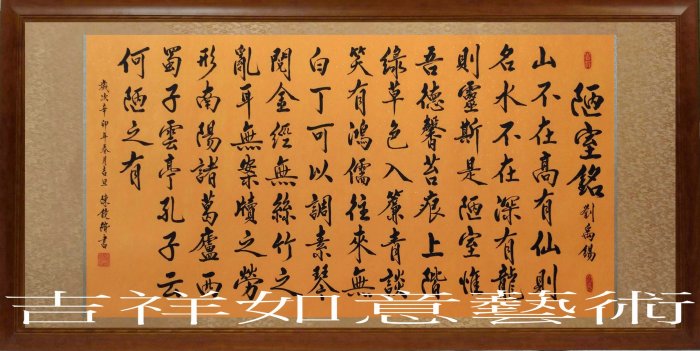 陋室銘 劉禹錫
山不在高有仙則
名水不在深有龍
則靈斯是陋室惟
吾德馨苔痕上階
綠草色入簾青談
笑有鴻儒往來無
白丁可以調素琴
閱金經無絲竹之
亂耳無案牘之勞
形南陽諸葛廬西
蜀子雲亭孔子云
何陋之有
歲次辛卯年春月吉旦 陳 書
吉祥如意藝術